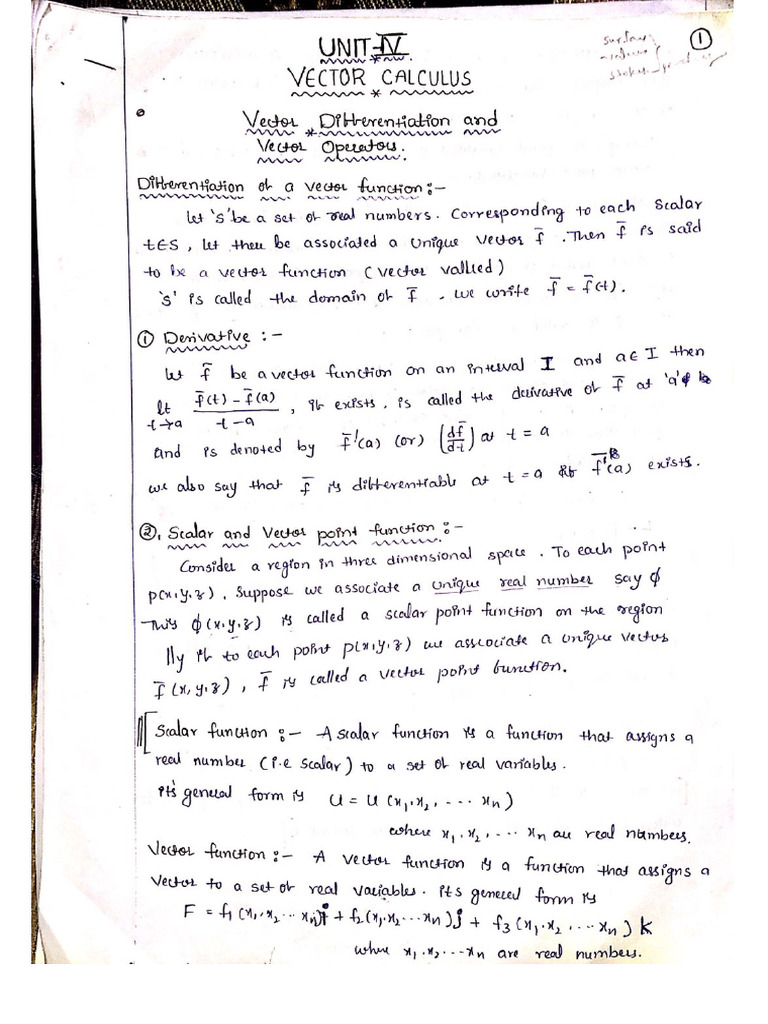 UNIT-IV
VECTOR CALCULUS
1
Vector Differentiation and
Vector Operators.
Differentiation of a vector function:-
let 's' be a set of real numbers. Corresponding to each scalar
t∈S, let there be associated a unique vector f̄. Then f̄ is said
to be a vector function (vector vallued)
's' is called the domain of f̄. we write f̄ = f̄(t).
① Derivative :-
let f̄ be a vector function on an interval I and a∈I then
lt t→a (f̄(t) - f̄(a))/(t-a), if exists, is called the derivative of f̄ at 'a'
and is denoted by f̄'(a) (or) (df̄/dt) at t = a
we also say that f̄ is differentiable at t = a if f̄'(a) exists.
②. Scalar and Vector point function:-
Consider a region in three dimensional space. To each point
p(x,y,z), suppose we associate a unique real number say ϕ
This ϕ(x,y,z) is called a scalar point function on the region
||ly if to each point p(x,y,z) we associate a unique vector
f̄(x,y,z), f̄ is called a vector point function.
Scalar function :- A scalar function is a function that assigns a
real number (i.e scalar) to a set of real variables.
it's general form is u = u(x₁,x₂, --- xₙ)
where x₁,x₂, --- xₙ are real numbers.
Vector function :- A vector function is a function that assigns a
vector to a set of real variables. its general form is
F = f₁(x₁,x₂ --- xₙ)i + f₂(x₁,x₂ --- xₙ)j + f₃(x₁,x₂, --- xₙ)k
where x₁,x₂ --- xₙ are real numbers.